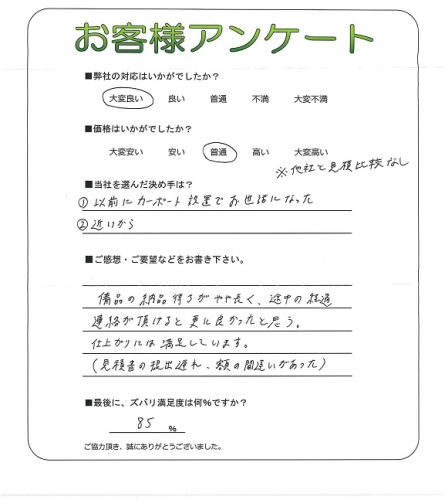 お客様アンケート
■弊社の対応はいかがでしたか?
大変良い 良い 普通 不満 大変不満
■価格はいかがでしたか?
大変安い 安い 普通 高い 大変高い
※他社と見積比較なし
■当社を選んだ決め手は?
①以前にカーポート設置でお世話になった
②近いから
■ご感想・ご要望などをお書き下さい。
備品の納品待ちがやや長く、途中の経過
連絡が頂けると更に良かったと思う。
仕上がりには満足しています。
(見積書の提出遅れ、額の間違いがあった)
■最後に、ズバリ満足度は何%ですか?
85 %
ご協力頂き、誠にありがとうございました。